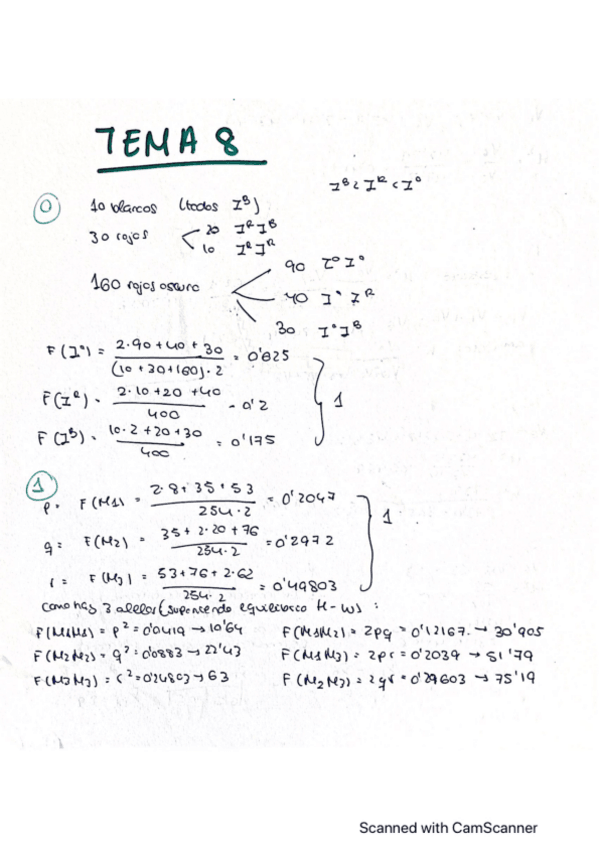 TEMA 8
I^B < I^R < I^O
0 10 blancos (todos I^B)
30 rojos < 20 I^R I^B
10 I^R I^R
160 rojos oscuro
90 I^O I^O
40 I^O I^R
30 I^O I^B
F(I^O) = (2·90+40+30)/((10+30+160)·2) = 0'625
F(I^R) = (2·10+20+40)/400 = 0'2
F(I^B) = (10·2+20+30)/400 = 0'175
} 1
1
p = F(M1) = (2·8+35+53)/(254·2) = 0'2047
q = F(M2) = (35+2·20+76)/(254·2) = 0'2972
r = F(M3) = (53+76+2·62)/(254·2) = 0'49803
} 1
como hay 3 alelos (suponiendo equilibrio H-W) :
F(M1M1) = p² = 0'0419 → 10'64 F(M1M2) = 2pq = 0'12167 → 30'905
F(M2M2) = q² = 0'0883 → 22'43 F(M1M3) = 2pr = 0'2039 → 51'79
F(M3M3) = r² = 0'24803 → 63 F(M2M3) = 2qr = 0'29603 → 75'19
Scanned with CamScanner